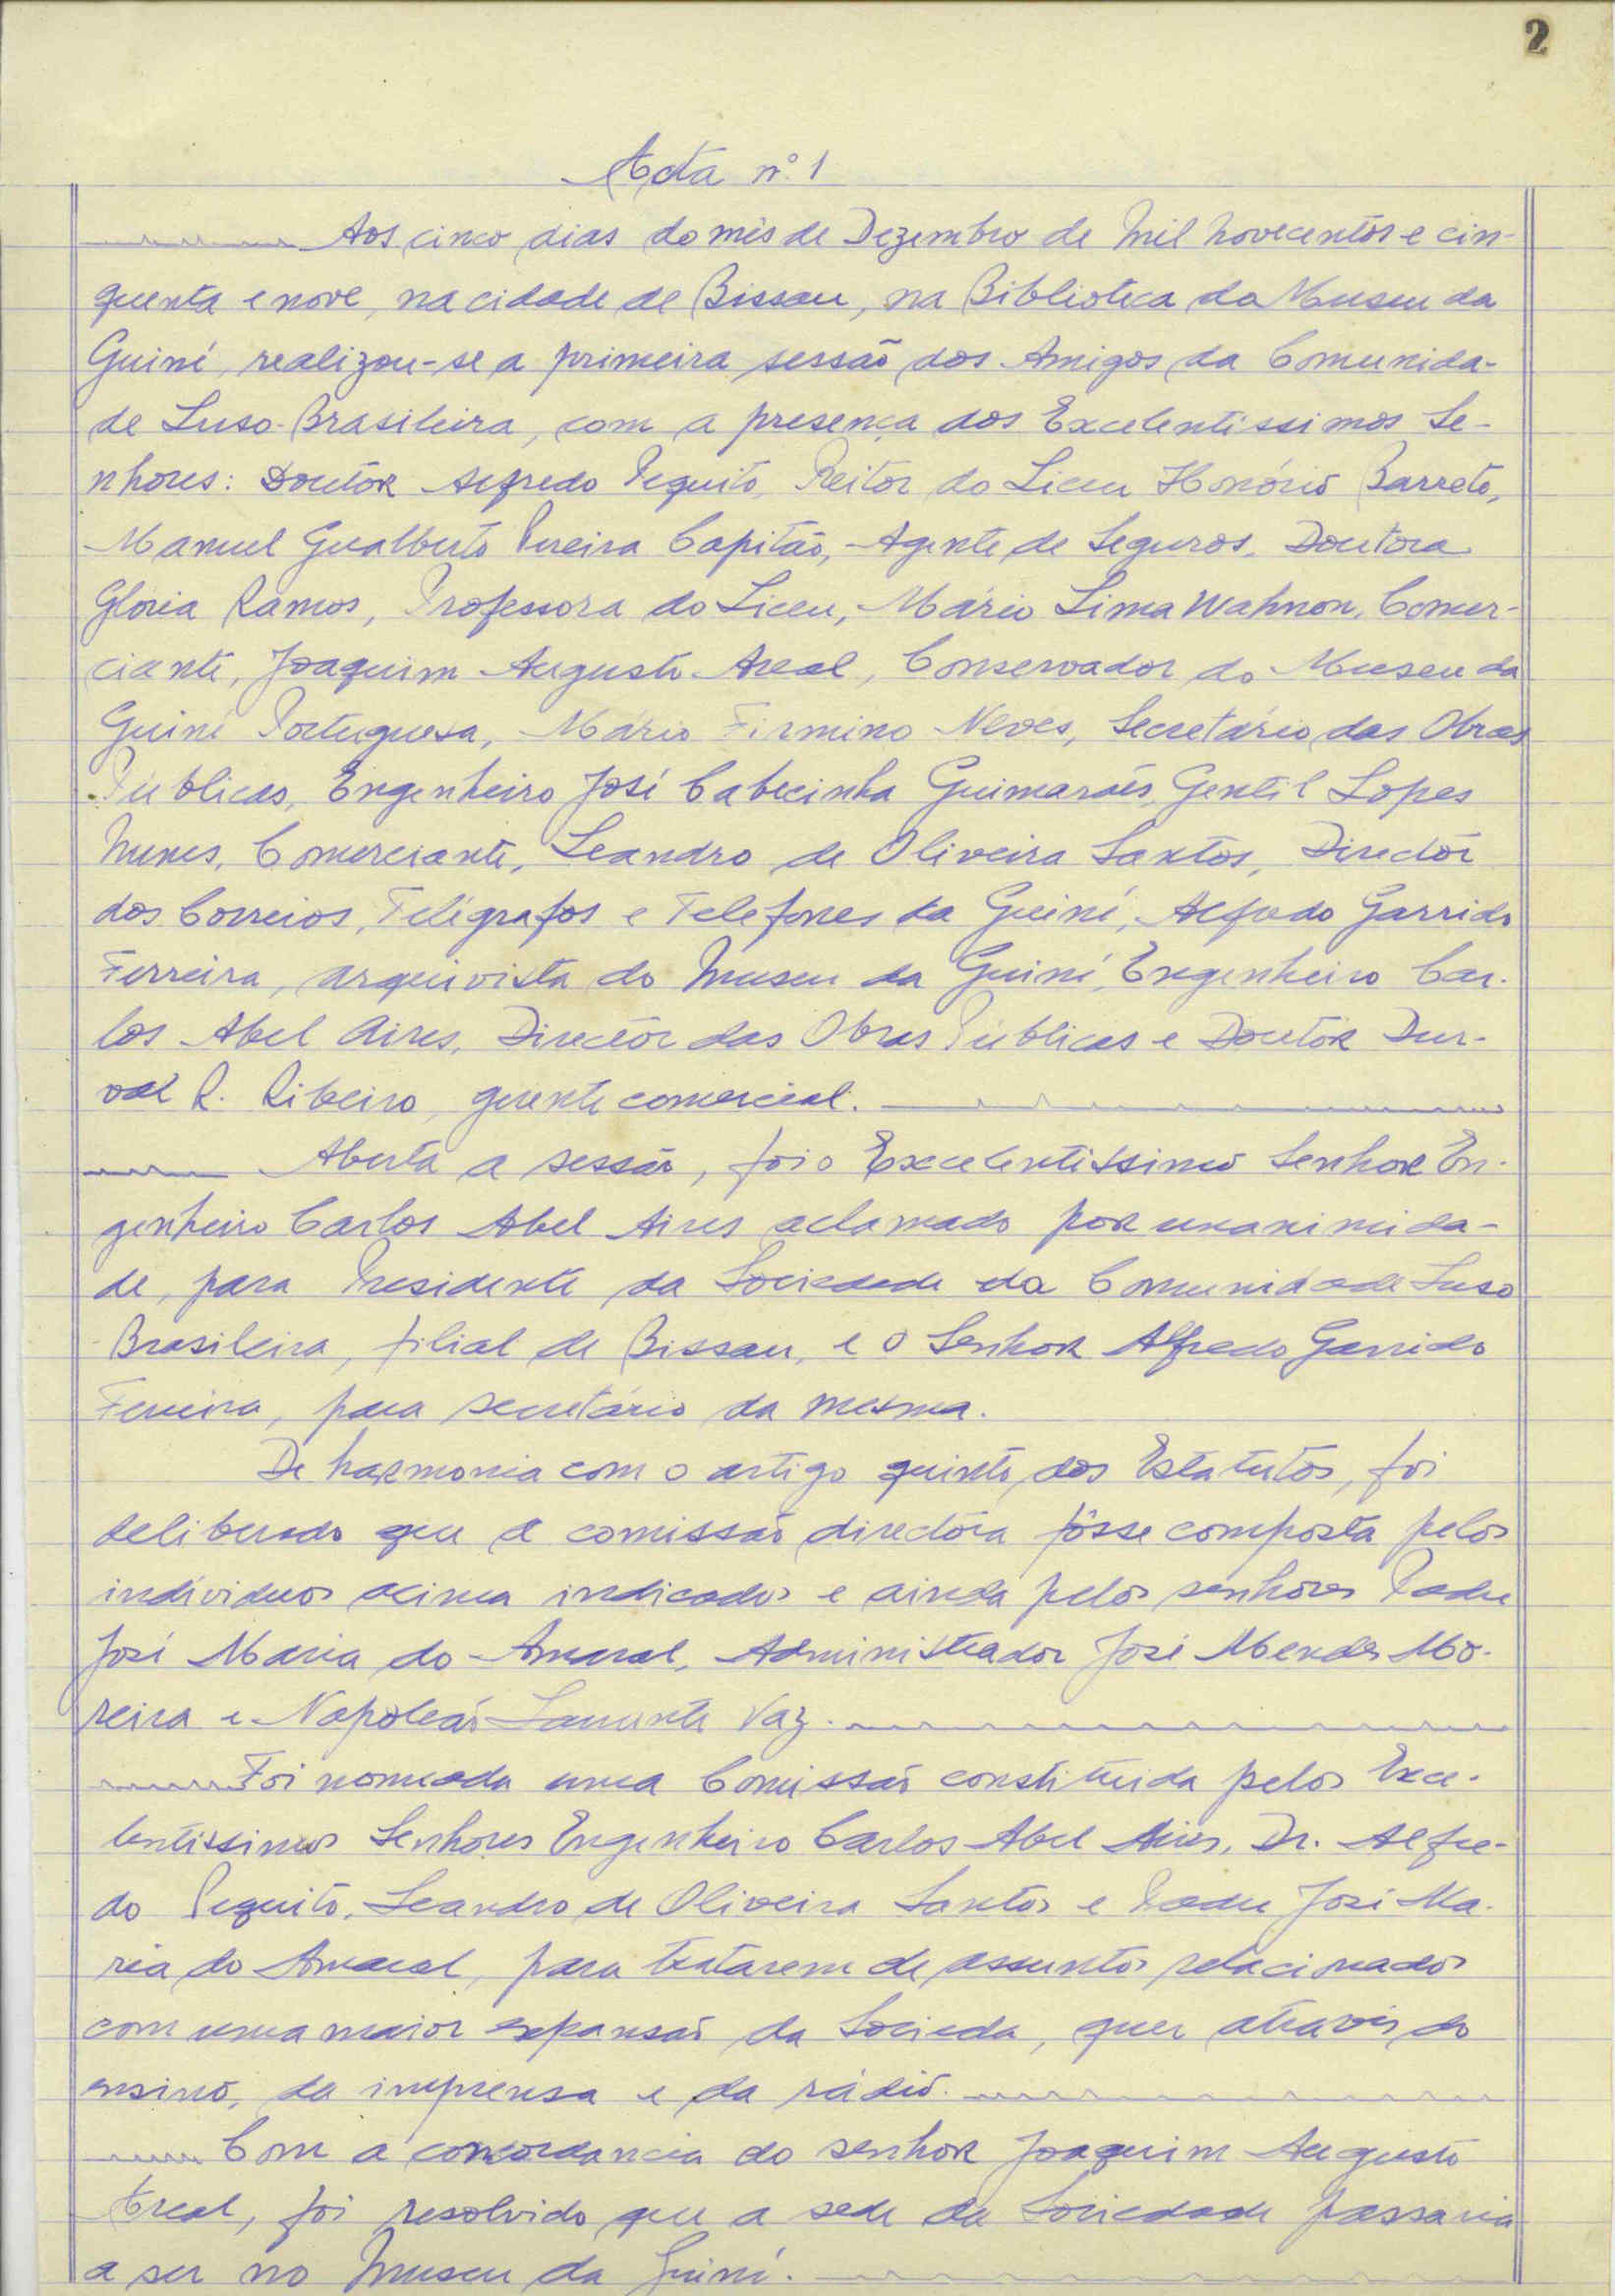 2
Acta nº 1
Aos cinco dias do mês de Dezembro de mil novecentos e cin-
quenta e nove, na cidade de Bissau, na Biblioteca do Museu da
Guiné, realizou-se a primeira sessão dos Amigos da Comunida-
de Luso-Brasileira, com a presença dos Excelentissimos Se-
nhores: Doutor Alfredo Pequito, Reitor do Liceu Honório Barreto,
Manuel Gualberto Pereira Capitão, Agente de Seguros, Doutora
Gloria Ramos, Professora do Liceu, Mário Lima Wahnon, Comer-
ciante, Joaquim Augusto Areal, Conservador do Museu da
Guiné Portuguesa, Mário Firmino Neves, Secretário das Obras
Públicas, Engenheiro José Cabecinha Guimarães, Gentil Lopes
Nunes, Comerciante, Leandro de Oliveira Santos, Director
dos Correios, Telégrafos e Telefones da Guiné, Alfredo Garrido
Ferreira, arquivista do Museu da Guiné, Engenheiro Car-
los Abel Aires, Director das Obras Públicas e Doutor Dur-
val R. Ribeiro, gerente comercial.
Aberta a sessão, foi o Excelentissimo Senhor En-
genheiro Carlos Abel Aires aclamado por unanimida-
de, para Presidente da Sociedade da Comunidade Luso
-Brasileira, filial de Bissau, e o Senhor Alfredo Garrido
Ferreira, para secretário da mesma.
De harmonia com o artigo quinto dos Estatutos, foi
deliberado que a comissão directóra fôsse composta pelos
indíviduos acima indicados e ainda pelos senhores Padre
José Maria do Amaral, Administrador José Mendes Mo-
reira e Napoleão Vaz.
Foi nomeada uma Comissão constituida pelos Exce-
lentissimos Senhores Engenheiro Carlos Abel Aires, Dr. Alfre-
do Pequito, Leandro de Oliveira Santos e Padre José Ma-
ria do Amaral, para tratarem de assuntos relacionados
com uma maior expansão da Socieda, quer através do
ensino, da imprensa e da rádio.
Com a concordancia do senhor Joaquim Augusto
Areal, foi resolvido que a sede da Sociedade passaria
a ser no Museu da Guiné.